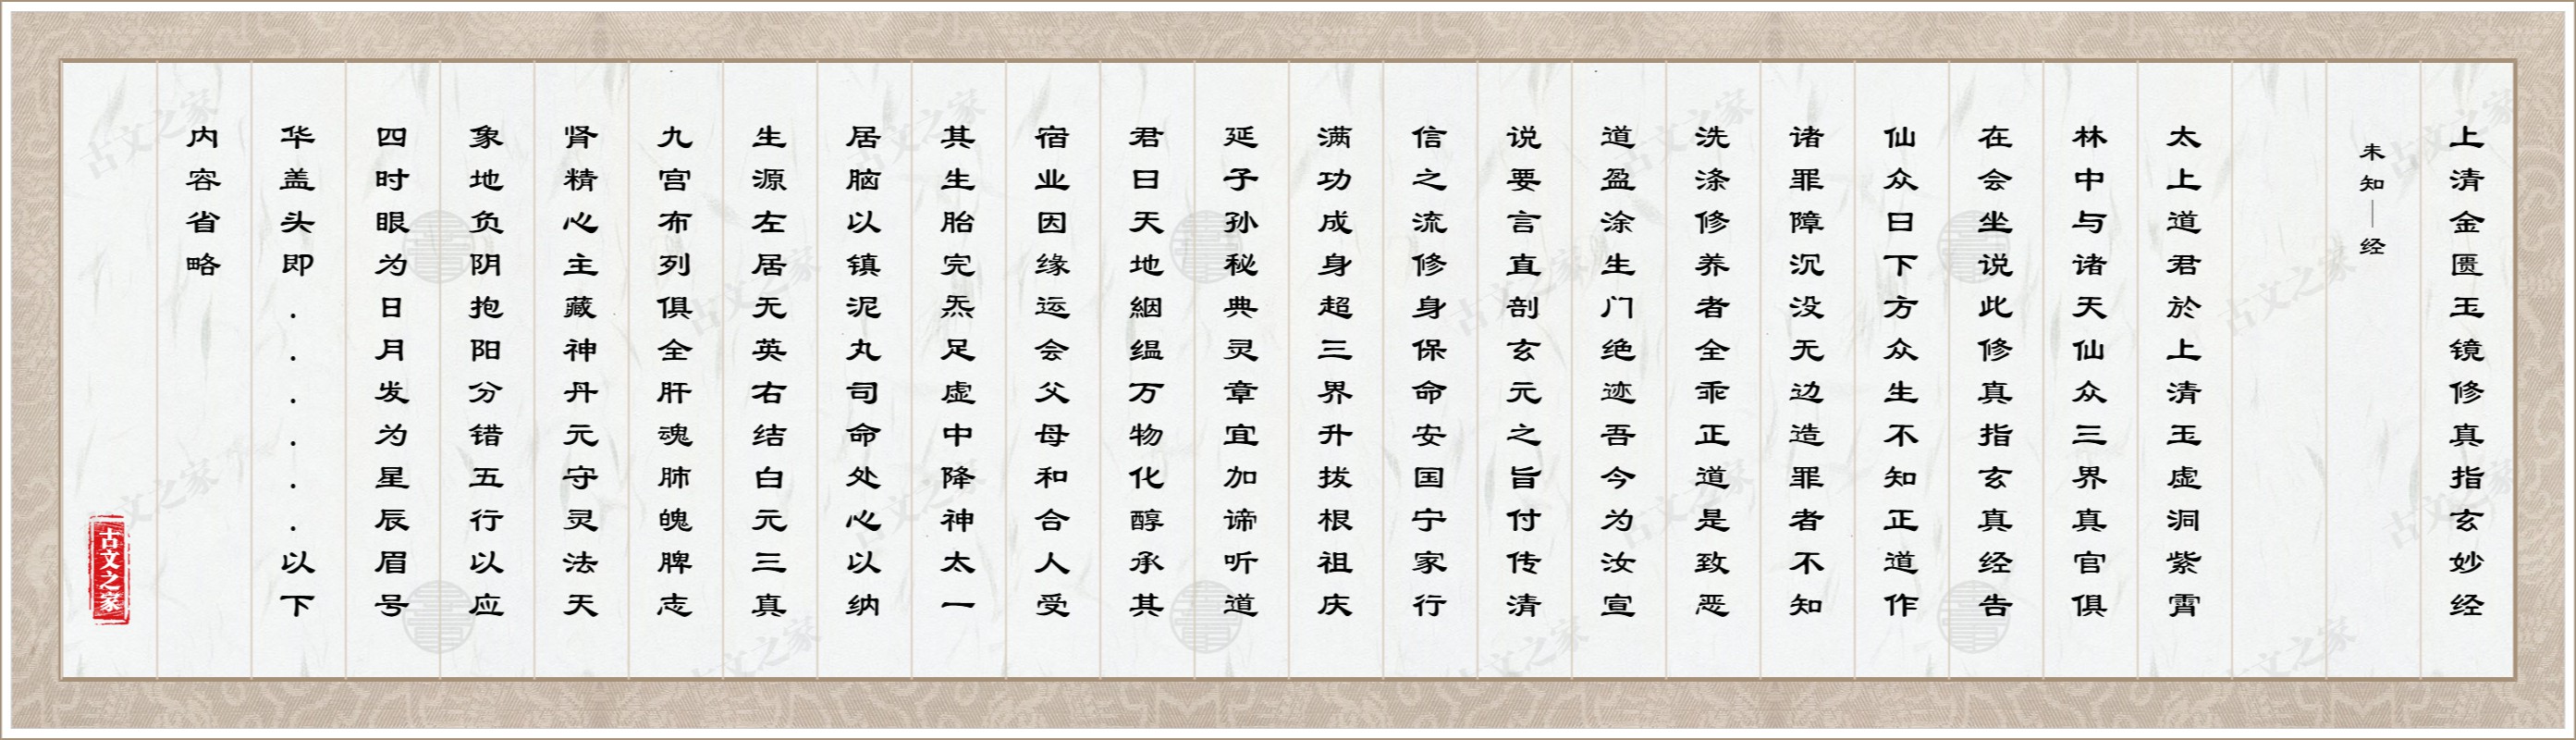 上清金匮玉镜修真指玄妙经
未知—经
太上道君於上清玉虚洞紫霄
林中与诸天仙众三界真官俱
在会坐说此修真指玄真经告
仙众曰下方众生不知正道作
诸罪障沉没无边造罪者不知
洗涤修养者全乖正道是致恶
道盈涂生门绝迹吾今为汝宣
说要言直剖玄元之旨付传清
信之流修身保命安国宁家行
满功成身超三界升拔根祖庆
延子孙秘典灵章宜加谛听道
君曰天地絪缊万物化醇承其
宿业因缘运会父母和合人受
其生胎完炁足虚中降神太一
居脑以镇泥丸司命处心以纳
生源左居无英右结白元三真
九宫布列俱全肝魂肺魄脾志
肾精心主藏神丹元守灵法天
象地负阴抱阳分错五行以应
四时眼为日月发为星辰眉号
华盖头即......以下
内容省略
古文之家